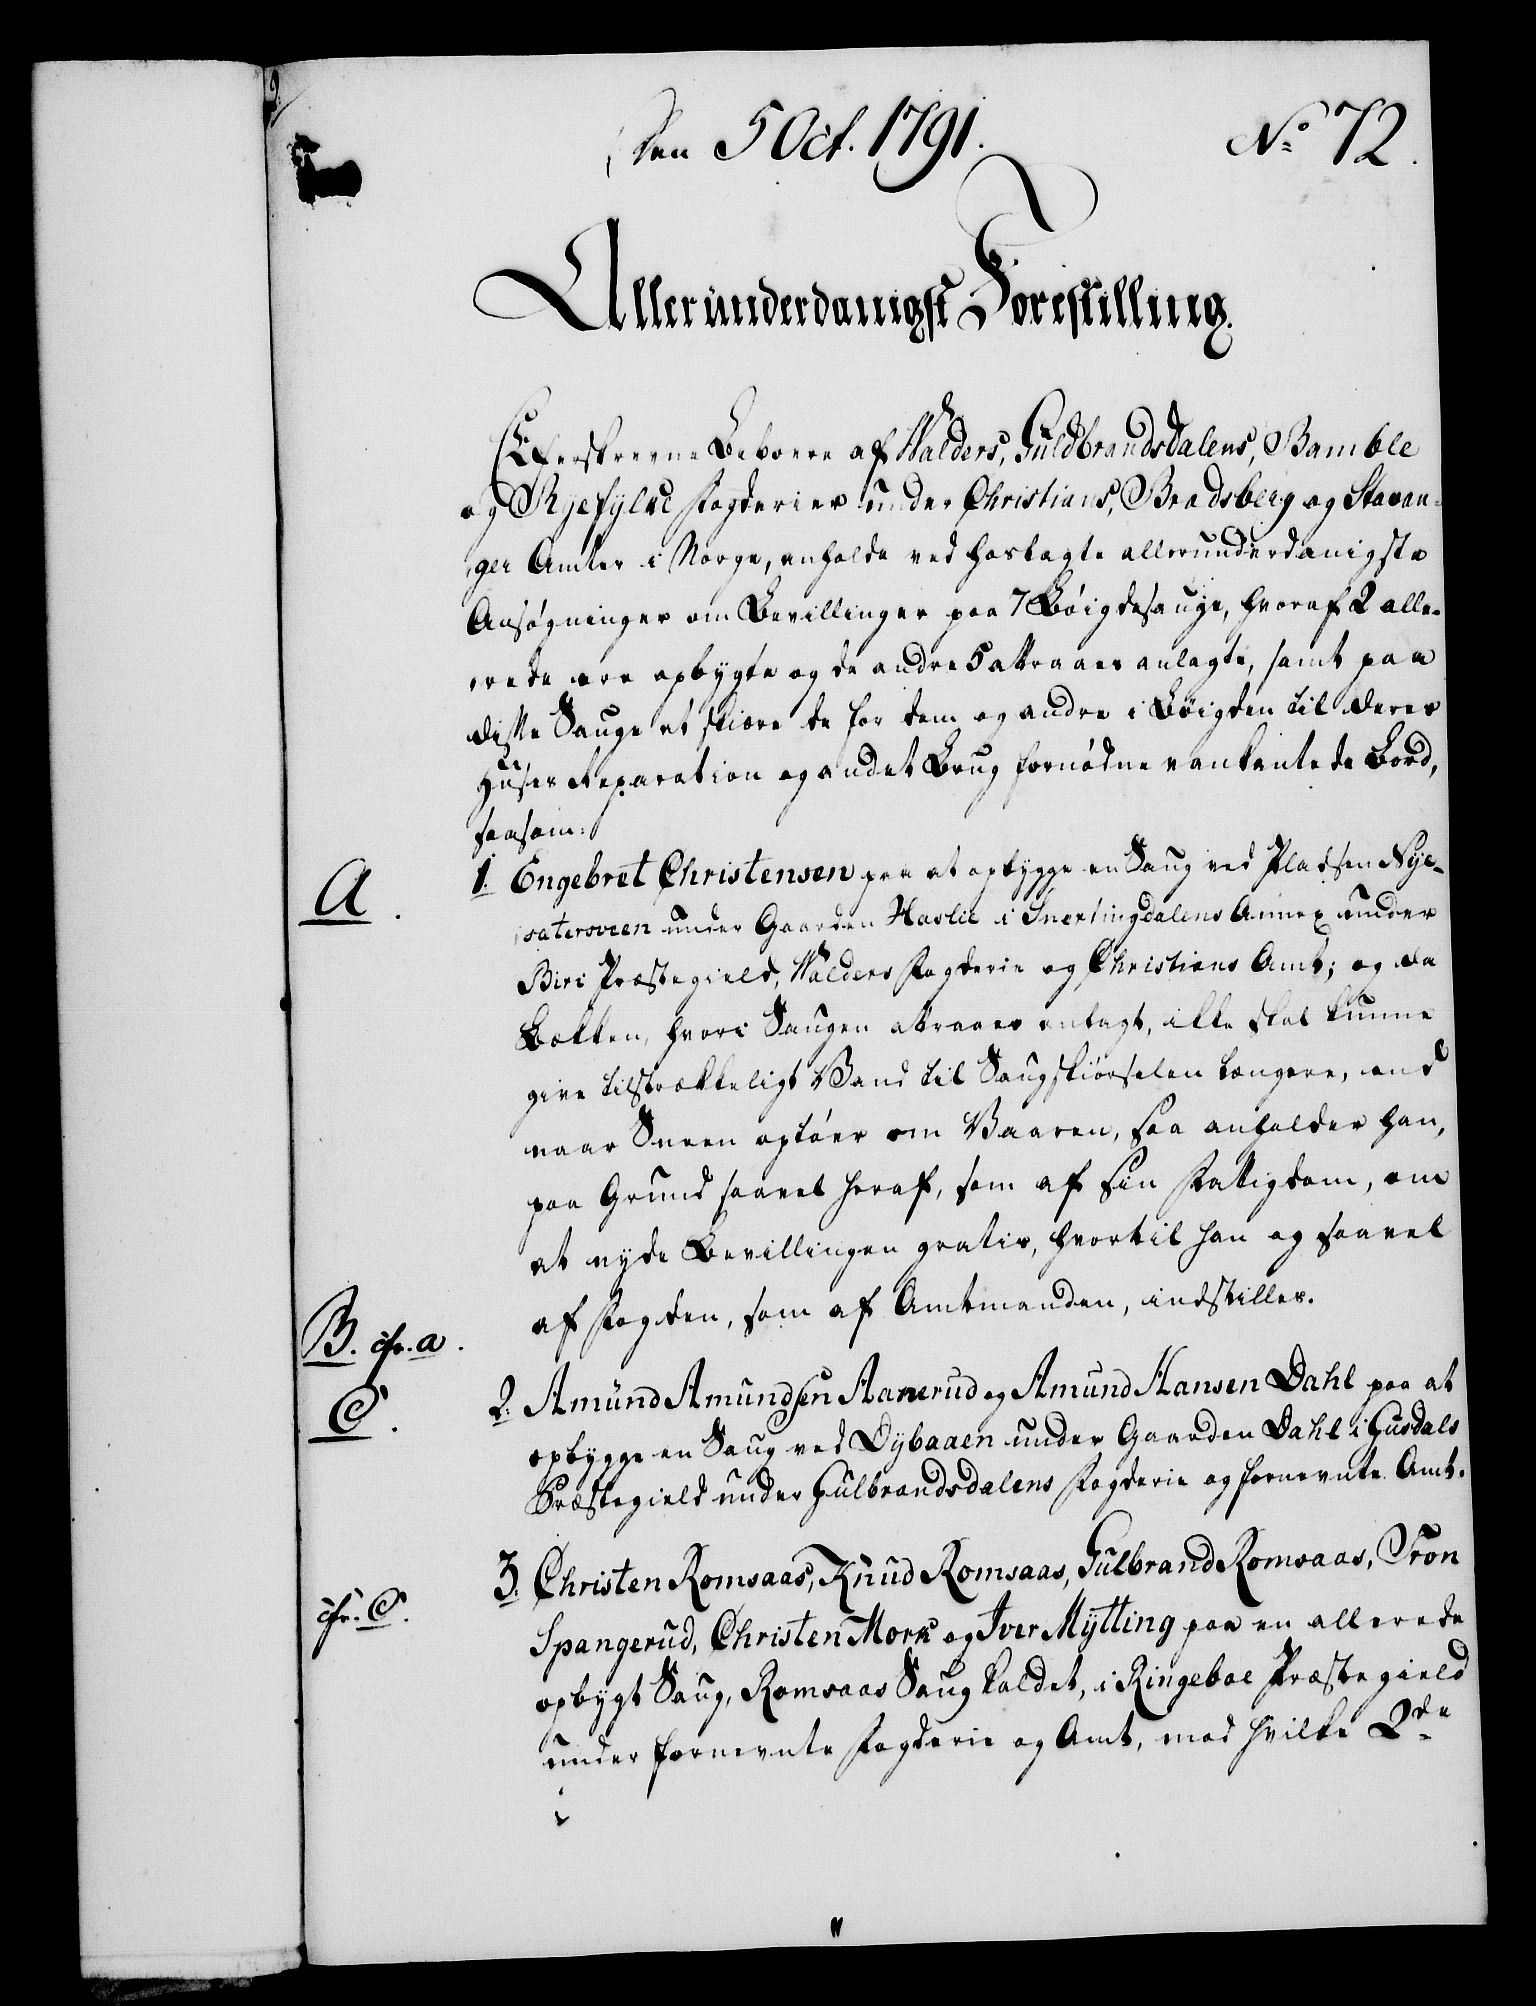 Den 5 Oct. 1791.
No 72.
Allerunderdanigst Forestilling.
Efterskrevne Beboere af Walders, Guldbrandsdalens, Bamble
og Ryefylke Fogderier under Christians, Bradsberg og Stavan-
ger Amter i Norge, anholde ved hoslagte allerunderdanigste
Ansøgninger om Bevillinger paa 7 Bøigdesauge, hvoraf 2 alle-
rede ere opbygte og de andre 5 attraaes anlagte, samt paa
disse Sauge at skiære de for dem og andre i Bøigden til deres
Huses Reparation og andet Brug fornødne vankantede Bord,
saasom:
A.
1. Engebret Christensen paa at opbygge en Saug ved Pladsen Nye-
satersveen under Gaarden Haslie i Snertingdalens Annex under
Biri Præstegield, Walders Fogderie og Christians Amt; og da
Bækken, hvori Saugen attraaes anlagt, ikke skal kunne
give tilstrækkeligt Vand til Saugskiørselen længere, end
naar Sneen optøer om Vaaren, saa anholder han,
paa Grund saavel heraf, som af sin Fattigdom, om
at nyde Bevillingen gratis, hvortil han og saavel
af Fogden, som af Amtmanden, indstilles.
B. cfr. a.
C.
2. Amund Amundsen Aanerud og Amund Hansen Dahl paa at
opbygge en Saug ved Dybaaen under Gaarden Dahl i Gusdals
Præstegield under Gulbrandsdalens Fogderie og fornevnte Amt.
cfr. C.
3. Christen Romsaas, Knud Romsaas, Gulbrand Romsaas, Tron
Spangerud, Christen Mork og Iver Mytting paa en allerede
opbygt Saug, Romsaas Saug kaldet, i Ringeboe Præstegield
under fornevnte Fogderie og Amt, mod hvilke 2de
i